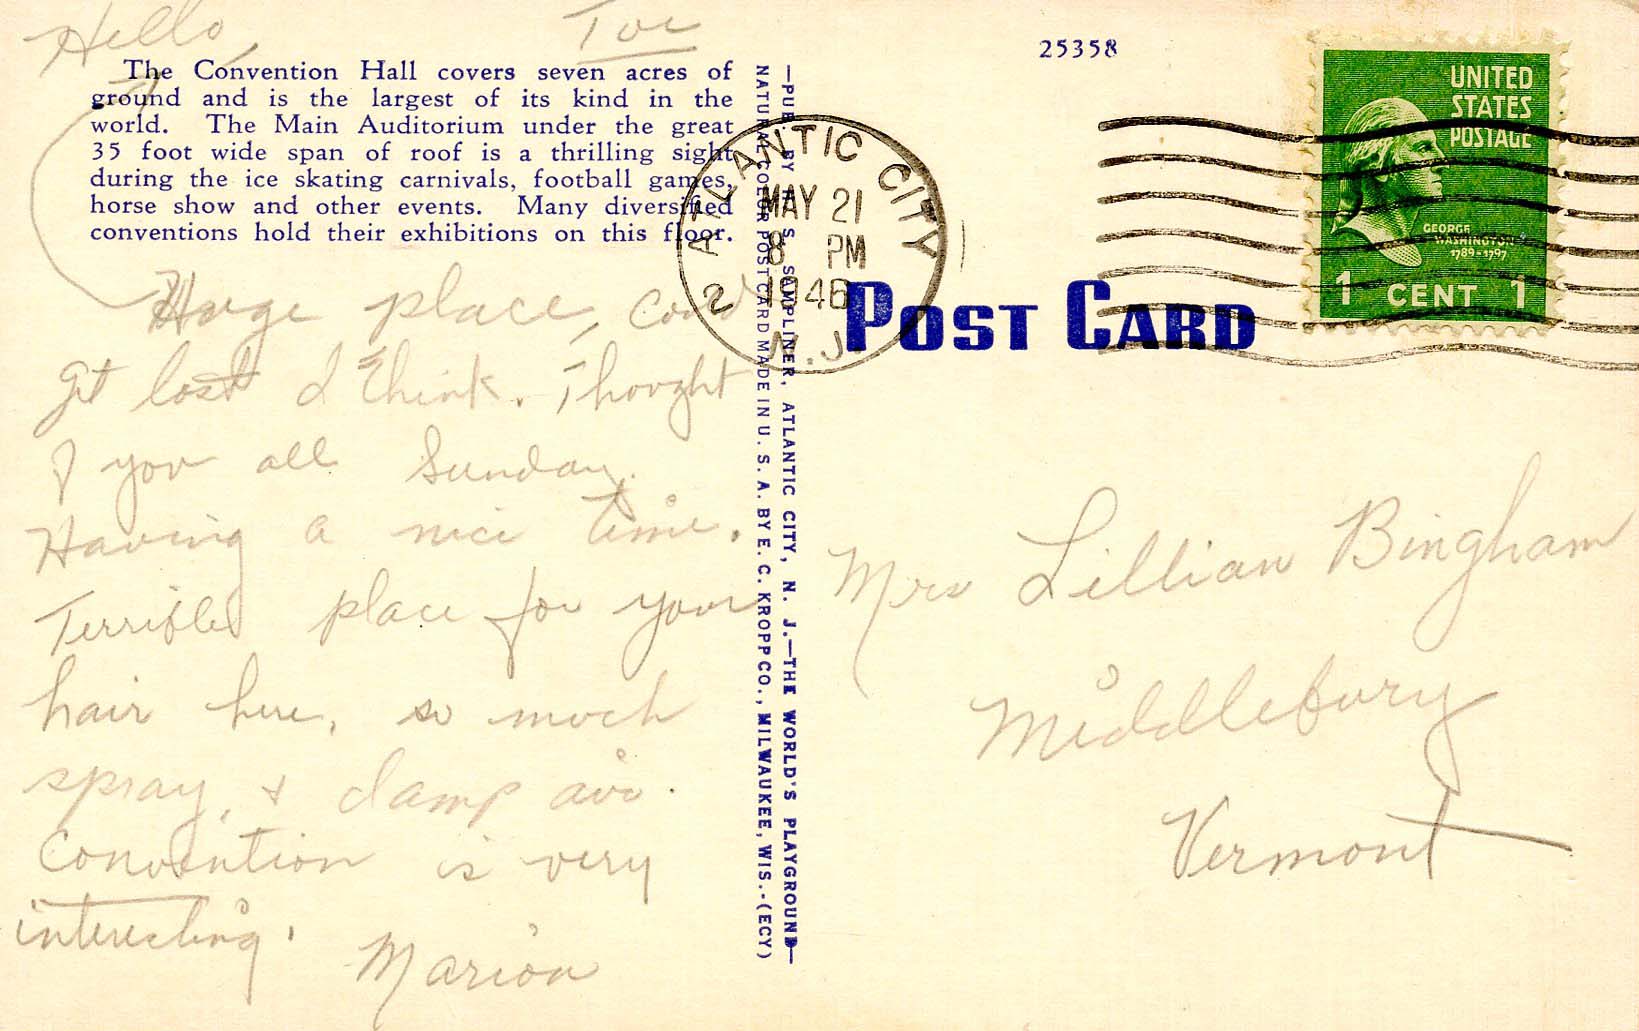 Hello,
Tue
The Convention Hall covers seven acres of
ground and is the largest of its kind in the
world. The Main Auditorium under the great
35 foot wide span of roof is a thrilling sight
during the ice skating carnivals, football games,
horse show and other events. Many diversified
conventions hold their exhibitions on this floor.
Huge place, could
get lost I think. Thought
of you all Sunday.
Having a nice time.
Terrible place for your
hair here, so much
spray, & damp air.
Convention is very
interesting.
Marion
—PUB. BY S. SAMPLINER, ATLANTIC CITY, N. J.—THE WORLD'S PLAYGROUND—
NATURAL COLOR POST CARD MADE IN U. S. A. BY E. C. KROPP CO., MILWAUKEE, WIS.-(ECY)
25358
ATLANTIC CITY
MAY 21
8 PM
1946
2 N.J.
UNITED
STATES
POSTAGE
GEORGE
WASHINGTON
1789-1797
1 CENT 1
POST CARD
Mrs Lillian Bingham
Middlebury
Vermont